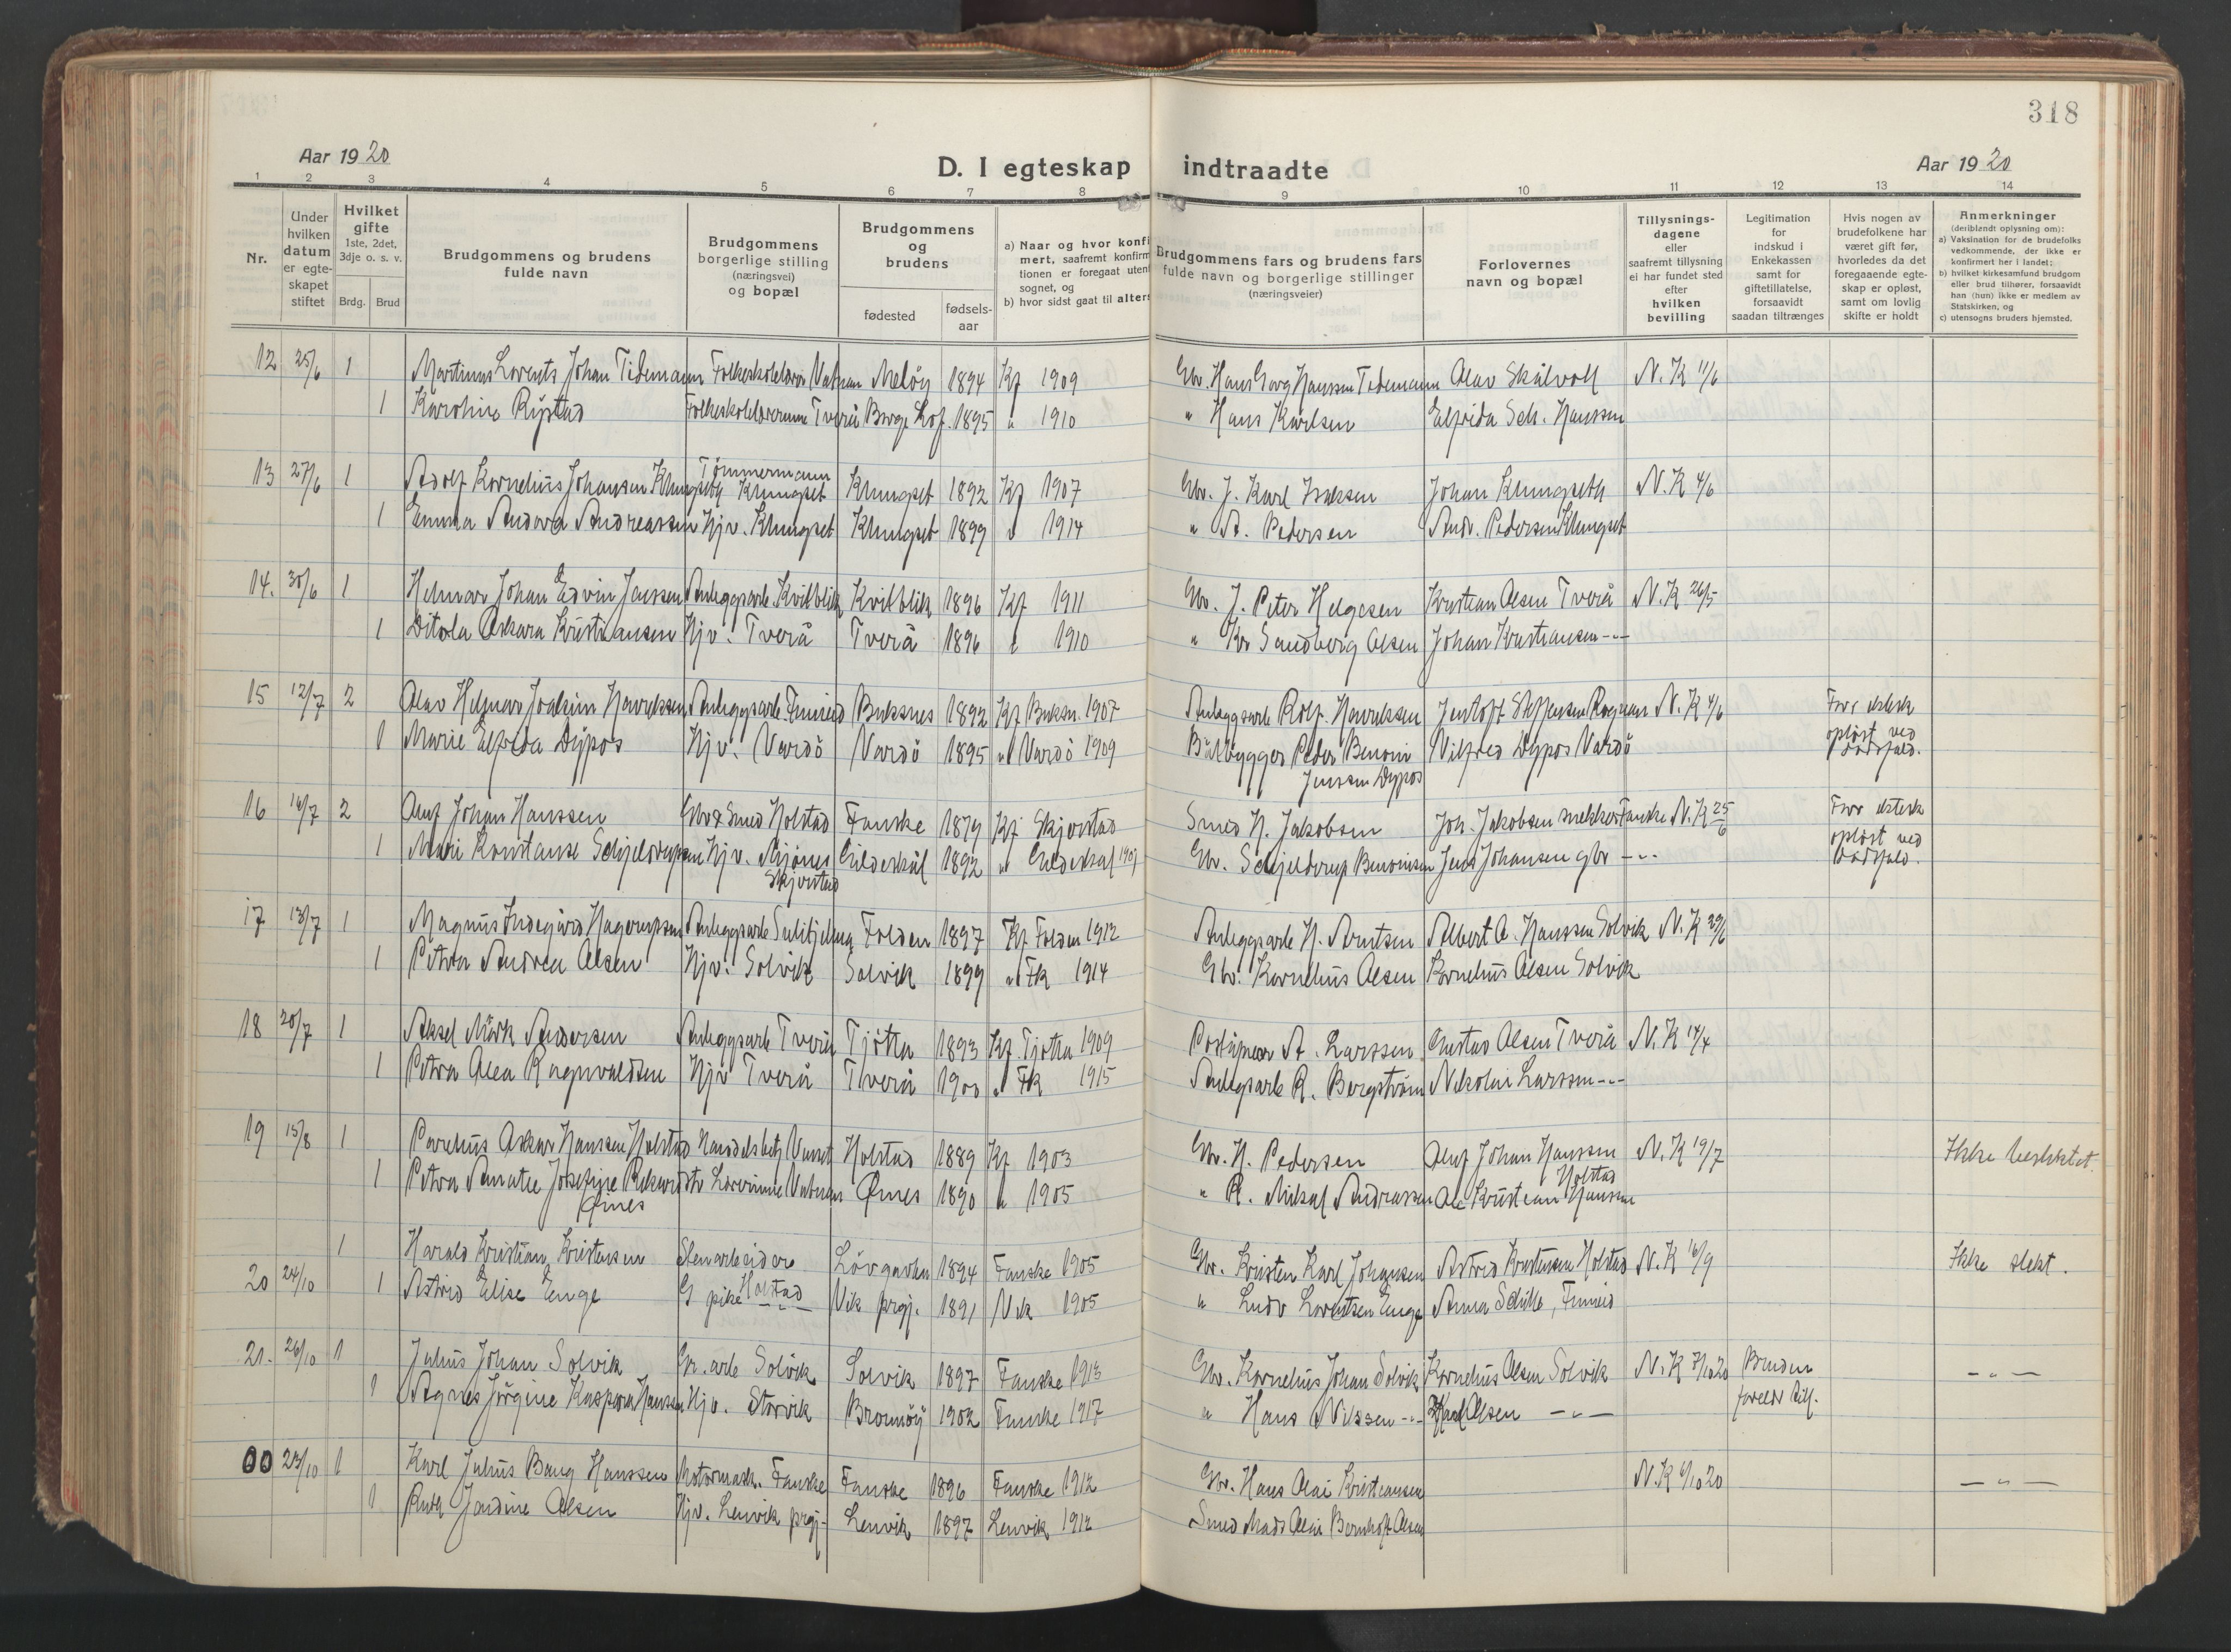 318
Aar 1920
D. I egteskap indtraadte
Aar 1920
1 2 3 4 5 6 7 8 9 10 11 12 13 14
Nr.
Under hvilken datum er egte-skapet stiftet
Hvilket gifte 1ste, 2det, 3dje o. s. v.
Brdg. Brud
Brudgommens og brudens fulde navn
Brudgommens borgerlige stilling (næringsvei) og bopæl
Brudgommens og brudens
fødested
fødsels-aar
a) Naar og hvor konfi
mert, saafremt konfirm
tionen er foregaat uten
sognet, og
b) hvor sidst gaat til alter
Brudgommens fars og brudens fars
fulde navn og borgerlige stillinger
(næringsveier)
Forlovernes navn og bopæl
Tillysnings-dagene eller saafremt tillysning ei har fundet sted efter hvilken bevilling
Legitimation for indskud i Enkekassen samt for giftetillatelse, forsaavidt saadan tiltrænges
Hvis nogen av brudefolkene har været gift før, hvorledes da det foregaaende egte-skap er opløst, samt om lovlig skifte er holdt
Anmerkninger
(deriblandt oplysning om):
a) Vaksination for de brudefolks vedkommende, der ikke er konfirmert her i landet;
b) hvilket kirkesamfund brudgom eller brud tilhører, forsaavidt han (hun) ikke er medlem av Statskirken, og
c) utensogns bruders hjemsted.
12 25/6 1 Martinus Lorents Johan Tidemann Folkeskolelærer Vatnan Meløy 1894 Kf 1909 Gbr. Hans Georg Hanssen Tidemann Olav Skålvoll N. K 11/6
1 Karoline Rystad Folkeskolelærerinne Tverå Borge Lof. 1895 " 1910 " Hans Karlsen Elfrida Sch. Hanssen
13 27/6 1 Adolf Kornelius Johansen Klungseth Tømmermann Klungset Klungset 1892 Kf 1907 Gbr. J. Karl Isaksen Johan Klungseth N. K 4/6
1 Emma Andora Andreassen Hjv. Klungset Klungset 1899 " 1914 " A. Pedersen Andr. Pedersen Klungset
14. 30/6 1 Helmar Johan Edvin Jenssen Anleggsarb. Kvitblik Kvitblik 1896 Kf 1911 Gbr. J. Peter Helgesen Kristian Olsen Tverå N. K 26/5
1 Ditola Oskara Kristiansen Hjv. Tverå Tverå 1896 " 1910 " Kr Sandberg Olsen Johan Kristiansen -"-
15 12/7 2 Olav Helmer Joakim Henriksen Anleggsarb. Finneid Buksnes 1892 Kf Buksn. 1907 Anleggsarb Rolf. Henriksen Jentoft Steffensen Rognan N. K 4/6 Forr ektesk opløst ved dødsfald.
1 Marie Elfrida Dypos Hjv. Vardö Vardö 1895 " Vardö 1909 Båtbygger Peder Benoni Jenssen Dypos Vilfred Dypos Vardö
16 14/7 2 Oluf Johan Hanssen Gbr & Smed Holstad Fauske 1879 Kf Skjerstad Smed H. Jakobsen Joh. Jakobsen snekker Fauske N. K 25/6 Forr ektesk opløst ved dødsfald.
1 Marie Konstanse Schjelderupsen Hjv. Mjönes Skjerstad Gildeskål 1892 " Gildeskål 1907 Gbr. Schjelderup Benonisen Jens Johansen gbr -"-
17 13/7 1 Magnus Indegård Hagerupsen Anleggsarb Sulitjelma Folden 1897 Kf Folden 1912 Anleggsarb H. Arntsen Albert A. Hanssen Solvik N. K 29/6
1 Petra Andrea Olsen Hjv. Solvik Solvik 1899 " Fk 1914 Gbr. Kornelius Olsen Kornelius Olsen Solvik
18 20/7 1 Aksel Mårk Andersen Anleggsarb Tverå Tjötta 1893 Kf. Tjötta 1909 Poståpner A. Larssen Gustav Olsen Tverå N. K 14/4
1 Petra Olea Ragnvaldsen Hjv Tverå Tverå 1900 " Fk 1915 Anlegsarb R. Bergström Nikolai Larssen -"-
19 15/8 1 Parelius Oskar Hanssen Holstad Handelsbetj Holstad 1889 Kf 1903 Gbr. H. Pedersen Oluf Johan Hanssen Holstad N. K 19/7 Ikke beslektet.
1 Petra Josefine Øines Lærerinne Vatnan Øines 1890 " 1905 " R. Mikal Andreassen Ole Kristian Hanssen
20 24/10 1 Harald Kristian Kristensen Stenarbeider Holstad Lövgavlen 1894 Fauske 1905 Gbr. Kristen Karl Johansen Astrid Kristensen Holstad N. K 16/9 Ikke slekt.
1 Astrid Elise Enge G pike -"- Vik prgj. 1891 Vik 1905 " Ludv Lorentsen Enge Anna Schille, Finneid
21. 26/10 1 Julius Johan Solvik Gr. arb Solvik Solvik 1897 Fauske 1913 Gbr. Kornelius Johan Solvik Kornelius Olsen Solvik N. K 7/10 20 Bruden foreldr till. -"-
1 Agnes Jörgine Kaspara Hanssen Hjv. Storvik Brönnöy 1902 Fauske 1917 " Hans Nilssen -"- Karl Olsen -"-
00 23/10 1 Karl Julius Bang Hanssen Motormask. Fauske Fauske 1896 Fauske 1912 Gbr. Hans Olai Kristiansen N. K 6/10 20 -"-
1 Ruth Jordine Olsen Hjv. Lenvik prgj. Lenvik 1897 Lenvik 1912 Smed Mads Olai Bernhoft Olsen